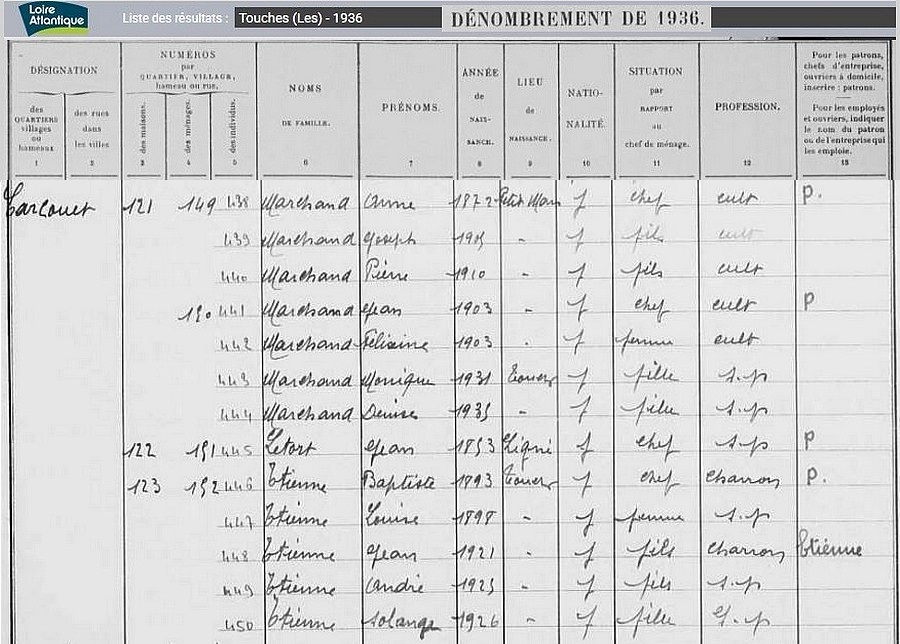 Loire Atlantique Liste des résultats : Touches (Les) - 1936 DÉNOMBREMENT DE 1936.
DÉSIGNATION
des QUARTIERS villages ou hameaux
des rues dans les villes
NUMÉROS par QUARTIER, VILLAGE, hameau ou rue.
des maisons.
des ménages.
des individus.
NOMS DE FAMILLE.
PRÉNOMS.
ANNÉE de NAISSANCE.
LIEU de NAISSANCE.
NATIONALITÉ.
SITUATION par RAPPORT au chef de ménage.
PROFESSION.
Pour les patrons, chefs d'entreprise, ouvriers à domicile, inscrire : patrons.
Pour les employés et ouvriers, indiquer le nom du patron ou de l'entreprise qui les emploie.
1 2 3 4 5 6 7 8 9 10 11 12 13
121 149 438 Marchand Anne 1872 Petit Mars f chef cult P.
439 Marchand Joseph 1905 - f fils cult
440 Marchand Pierre 1910 - f fils cult
150 441 Marchand Jean 1903 - f chef cult P
442 Marchand Félixine 1903 - f femme cult
443 Marchand Monique 1931 f fille s.p
444 Marchand Denise 1935 - f fille s.p
122 151 445 Letort Jean 1853 Ligné f chef s.p P
123 152 446 Etienne Baptiste 1893 f chef charron P.
447 Etienne Louise 1898 - f femme s.p
448 Etienne Jean 1921 - f fils charron Etienne
449 Etienne André 1925 - f fils s.p
450 Etienne Solange 1926 - f fille s.p